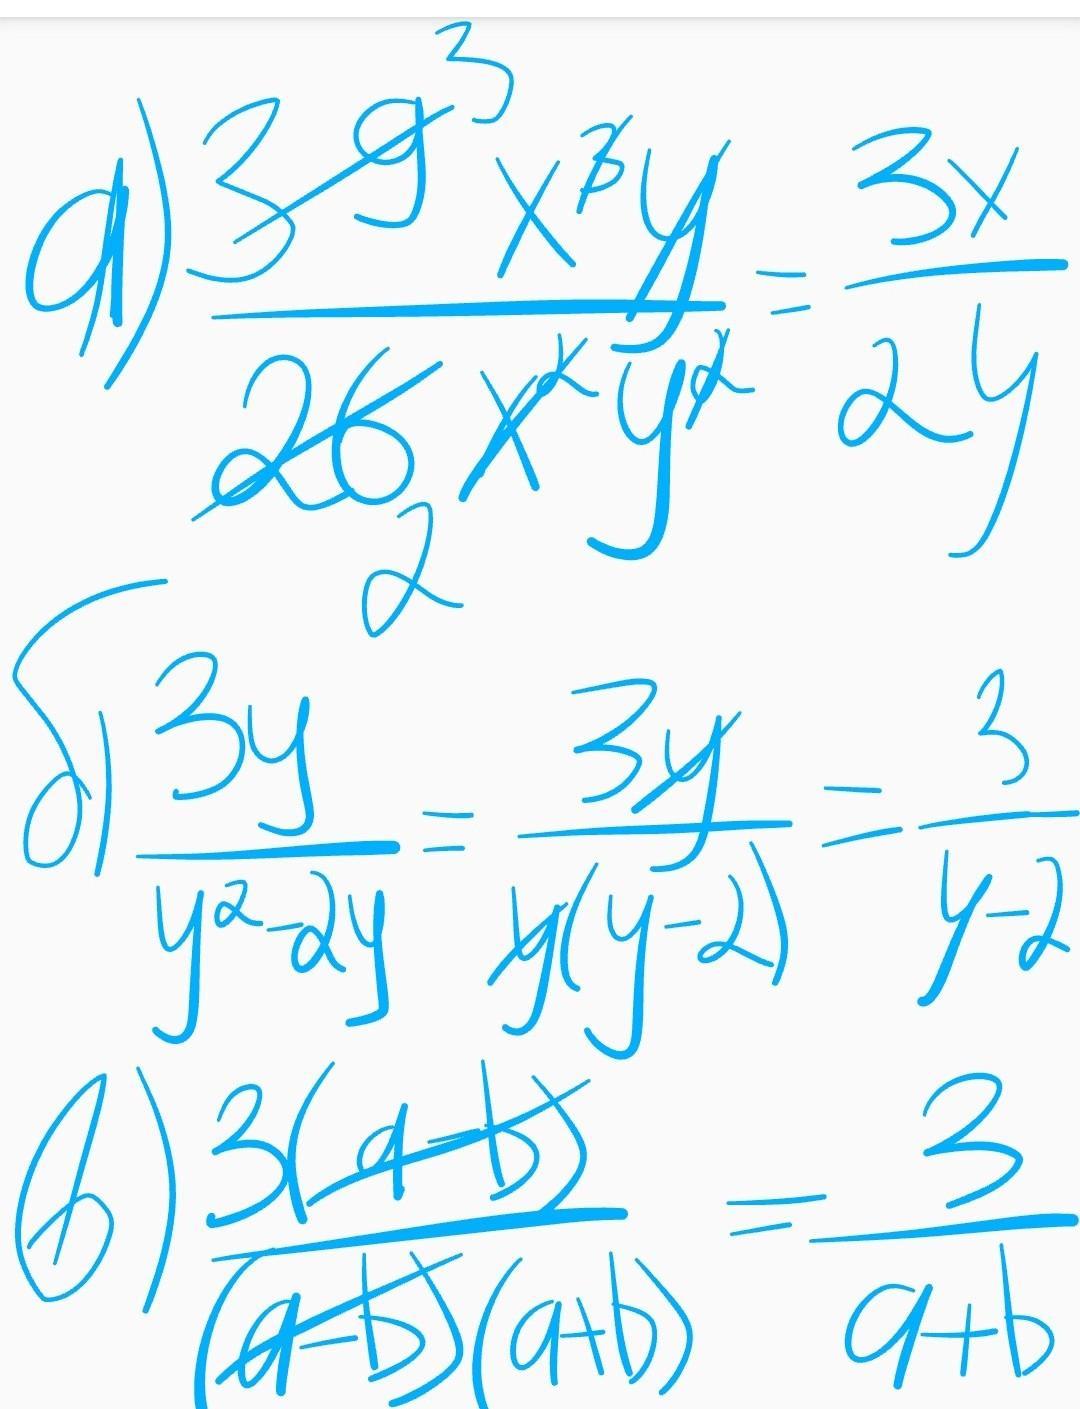 а) 39³x³y / 26²x²y² = 3x / 2y
б) 3y / y²-2y = 3y / y(y-2) = 3 / y-2
в) 3(a-b) / (a-b)(a+b) = 3 / a+b